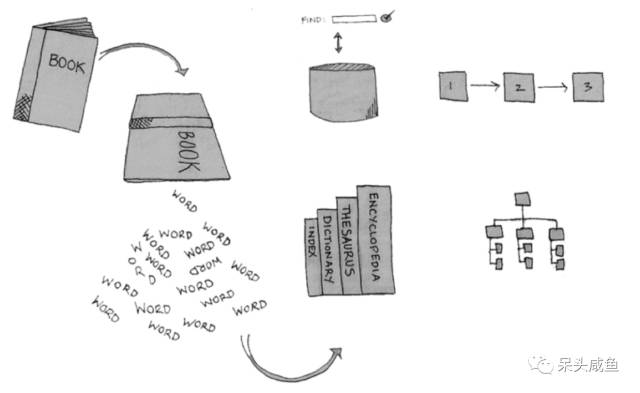 BOOK
BOOK
WORD
WORD
WORD
WORD
W
O
R
D
WORD
WORD
WORD
WORD
WORD
WORD
WORD
WORD
WORD
WORD
WORD
WORD
FIND:
INDEX
DICTIONARY
THESAURUS
ENCYCLOPEDIA
1
2
3
呆头咸鱼